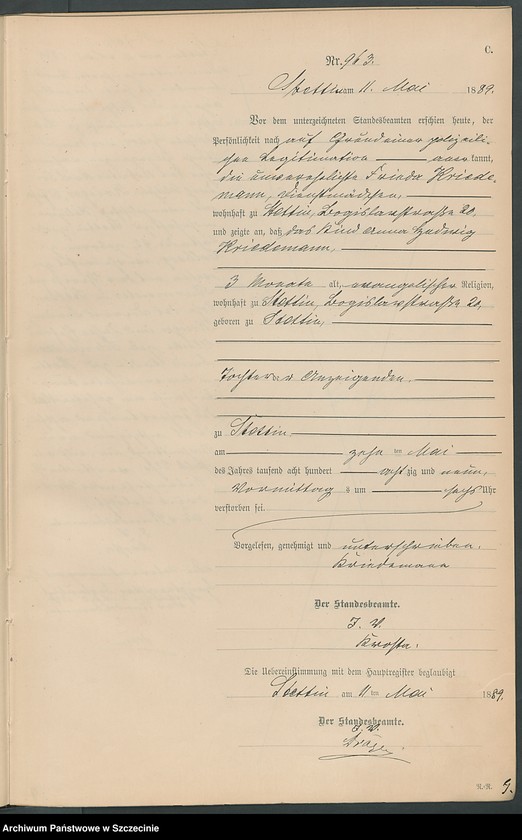 C.
Nr. 963.
Stettin am 11. Mai 1889.
Vor dem unterzeichneten Standesbeamten erschien heute, der
Persönlichkeit nach auf Grund einer polizeili-
chen Legitimation anerkannt,
die unverehelichte Frieda Kriede-
mann, Dienstmädchen,
wohnhaft zu Stettin, Bogislavstraße 20,
und zeigte an, daß das Kind Anna Hedwig
Kriedemann,
3 Monate alt, evangelischer Religion,
wohnhaft zu Stettin, Bogislavstraße 20,
geboren zu Stettin,
Tochter der Anzeigenden,
zu Stettin
am zehn ten Mai
des Jahres tausend acht hundert achtzig und neun,
Vormittags um sechs Uhr
verstorben sei.
Vorgelesen, genehmigt und unterschrieben.
Kriedemann
Der Standesbeamte.
I. V.
Die Uebereinstimmung mit dem Hauptregister beglaubigt
Stettin am 11 ten Mai 1889.
Der Standesbeamte.
I. V.
N.-R.
Archiwum Państwowe w Szczecinie